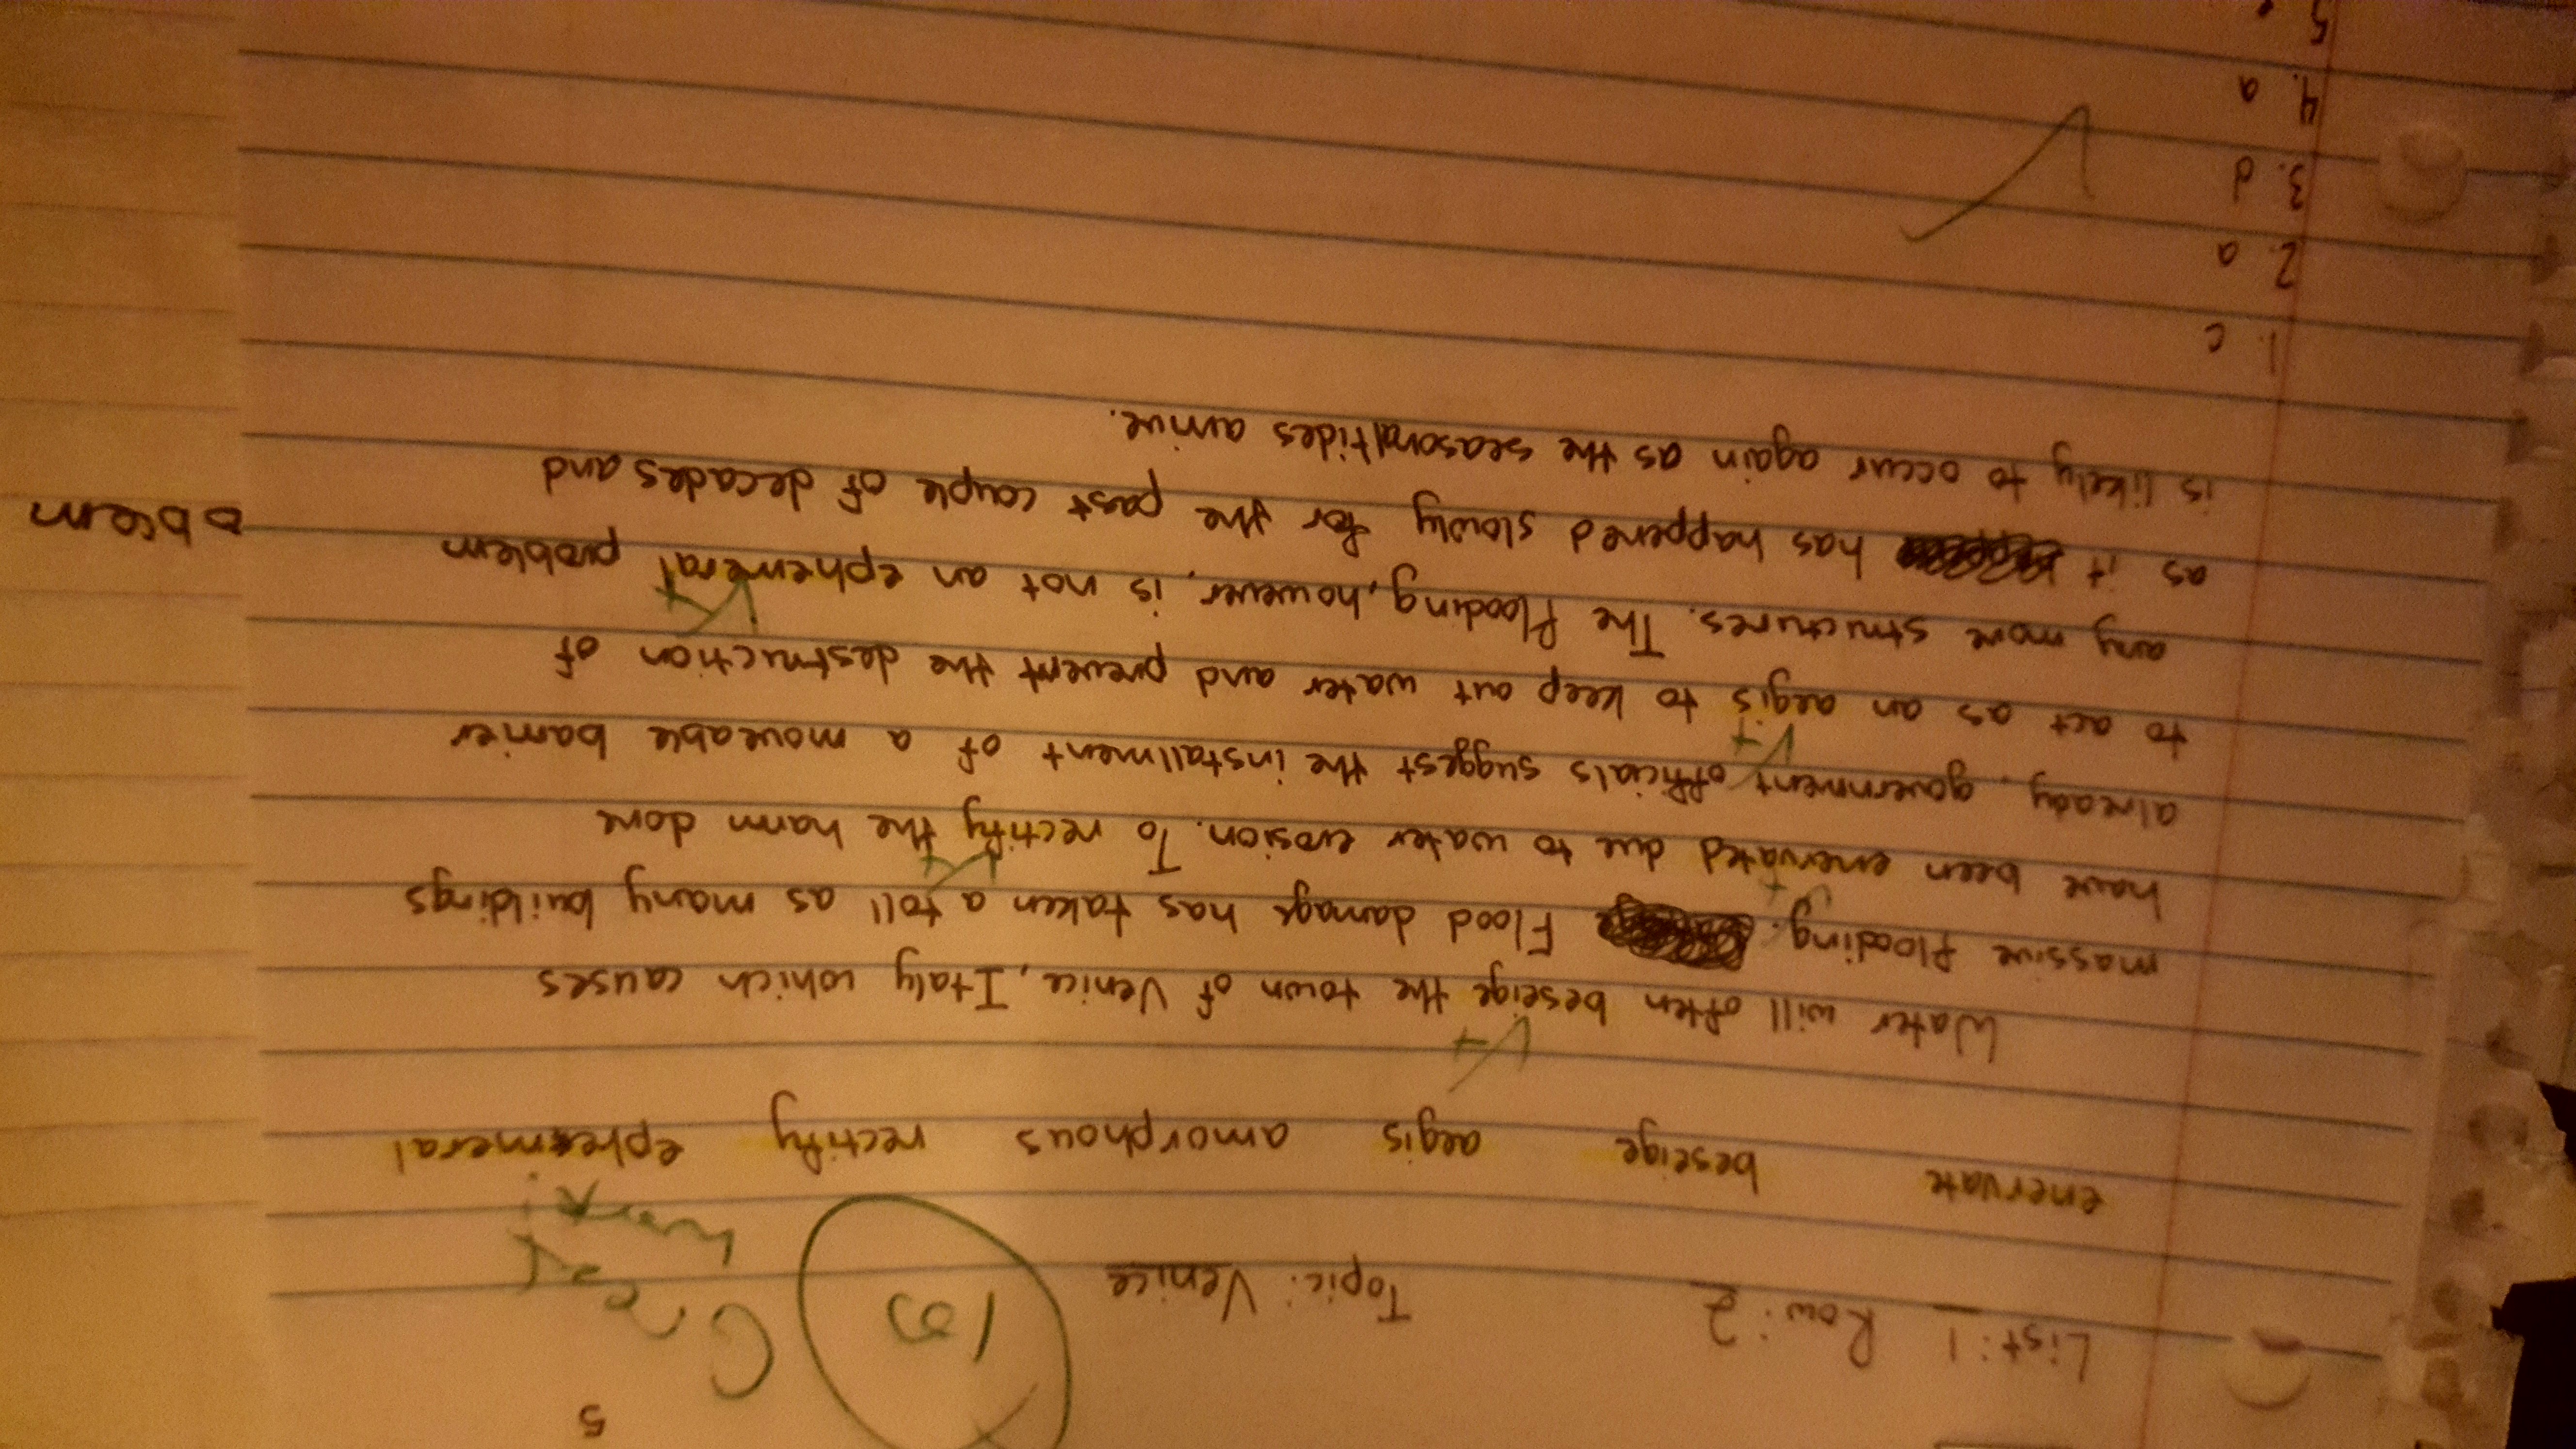 5
List: 1 Row: 2 Topic: Venice 100 Great
work!
enervate beseige aegis amorphous rectify ephemeral
V+
Water will often beseige the town of Venice, Italy which causes
massive flooding. Flood damage has taken a toll as many buildings
V+ V+
have been enervated due to water erosion. To rectify the harm done
already, government officials suggest the installment of a moveable barrier
V+
to act as an aegis to keep out water and prevent the destruction of
V+
any more structures. The flooding, however, is not an ephemeral problem
as it has happened slowly for the past couple of decades and
is likely to occur again as the seasonal tides arrive.
1. c
2. a
3. d
4. a
5.